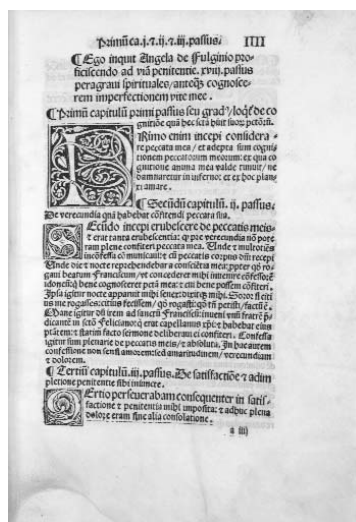 Primũ ca.j.⁊.ij.⁊.iij.passus. IIII
¶ Ego inquit Angela de Fulginio pro-
ficiscendo ad viã penitentie. xviij. passus
peragravi spirituales / anteq̃ cognosce-
rem imperfectionem vite mee.
¶ Primũ capitulũ primi passus seu gradꝰ / loq̃t̃ de co
gnitiõe quã hec scťa huit suoꝝ pctõrũ.
PRimo enim incepi considera-
re peccata mea / et adepta sum cogni-
tionem peccatorum meorum: ex qua co
gnitione anima mea valde timuit / ne
damnaretur in inferno: et ex hoc plan-
xi amare.
¶ Secũdũ capitulũ. ij. passus.
De verecundia quã habebat cõfitendi peccata sua.
SEcũdo incepi erubescere de peccatis meis
⁊ erat tanta erubescentia: q̃ p̃e verecundia nõ pote
ram plene confiteri peccata mea. Unde ⁊ multotiẽs
incõfessa cõmunicaui: ⁊ cũ peccatis corpus dñi recepi
Unde die ⁊ nocte reprehendebar a conscientia mea: ppter qd̃ ro-
gaui beatum Franciscum / vt concederet mihi inuenire cõfessorẽ
idoneũ: q̃ bene cognosceret pctã mea: ⁊ cui bene possem cõfiteri.
Ipsa igitur nocte apparuit mihi senex: dixitq̃ mihi. Soror si citi
us me rogasses: citius fecissem / qd̃ rogasti: qd̃ tñ petisti / factũ ẽ.
Mane igitur
confessione non sensi amorem: sed amaritudinem / verecundiam
⁊ dolorem.
¶ Tertiũ capitulũ. iij. passus. De satisfactiõe ⁊ adim
pletione penitentie sibi iniuncte.
TErtio perseuerabam consequenter in satis-
factione ⁊ penitentia mihi imposita: ⁊ adhuc plena
dolore eram sine alia consolatione.
a iiij